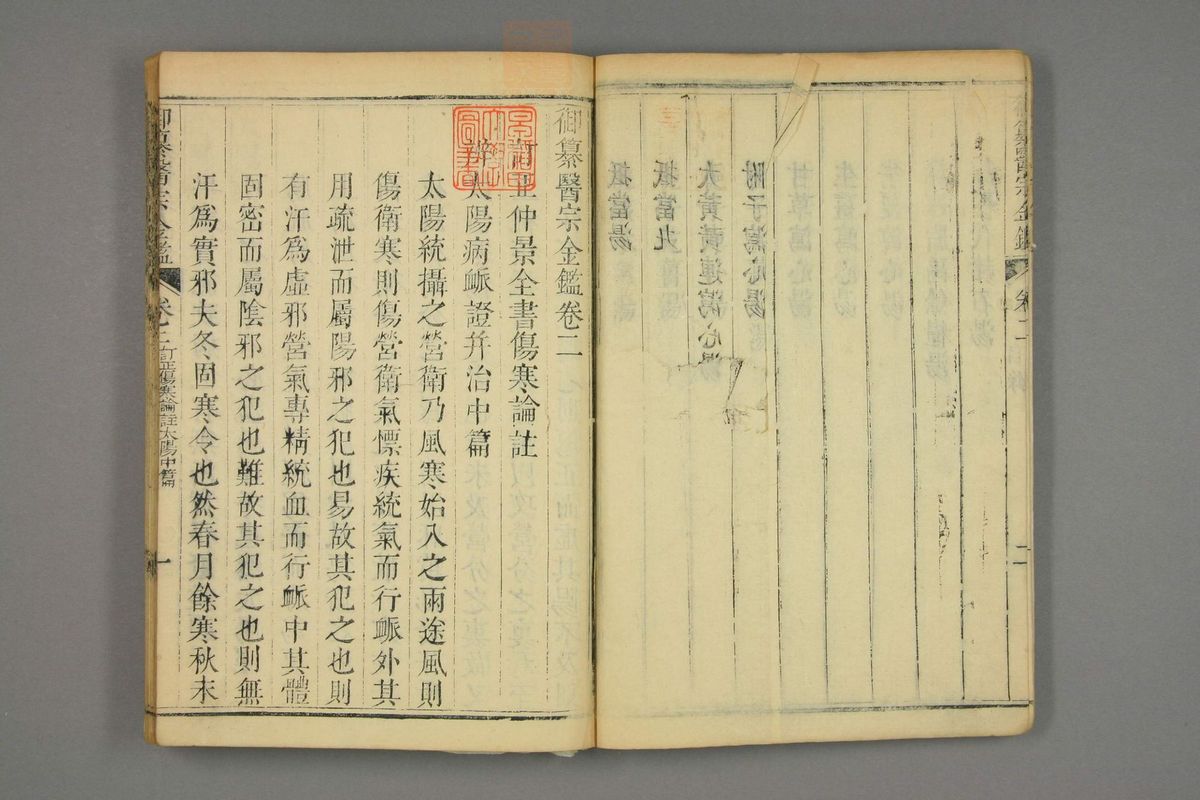 御纂醫宗金鑑
卷二
二
御纂醫宗金鑑卷二
訂正仲景全書傷寒論註
辨太陽病衇證并治中篇
太陽統攝之營衛乃風寒始入之兩途風則
傷衛寒則傷營衛氣慓疾統氣而行衇外其
用疏泄而屬陽邪之犯也易故其犯之也則
有汗爲虛邪營氣專精統血而行衇中其體
固密而屬陰邪之犯也難故其犯之也則無
汗爲實邪夫冬固寒令也然春月餘寒秋末
御纂醫宗金鑑
卷二 訂正傷寒論註太陽中篇
一